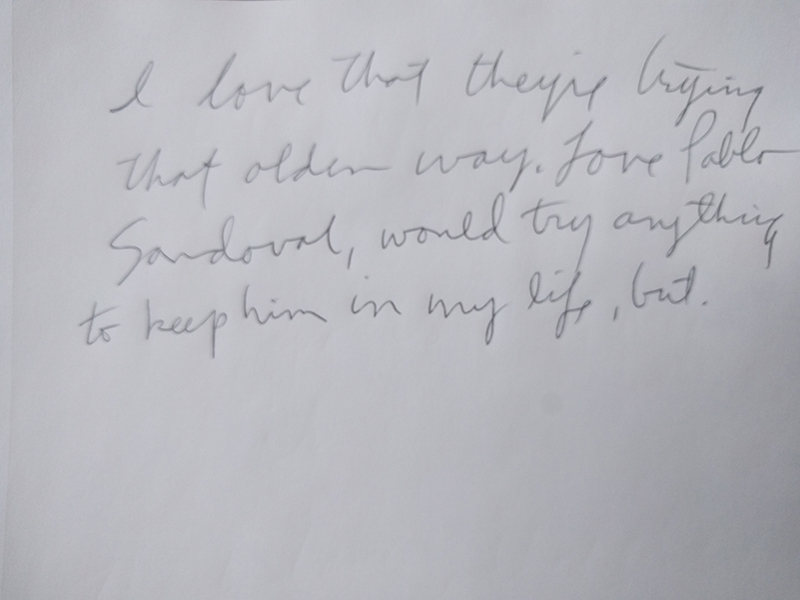 I love that they're trying
that olden way. Love Pablo
Sandoval, would try anything
to keep him in my life, but.